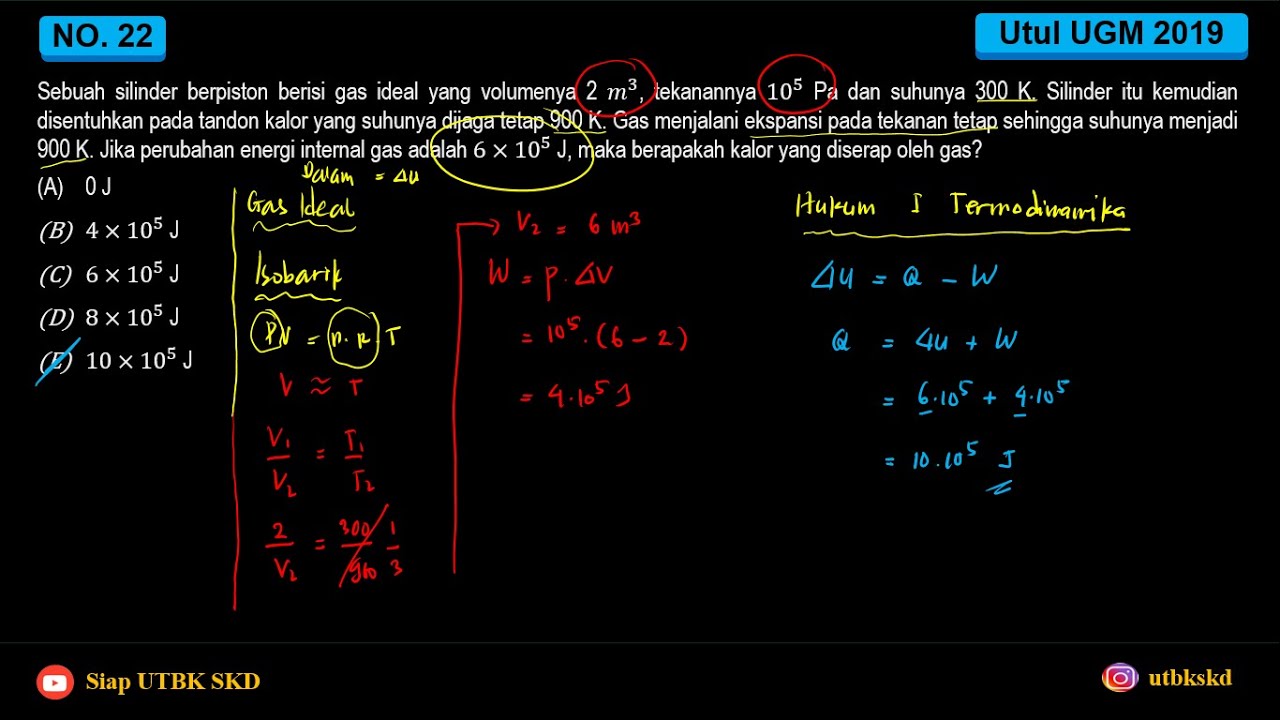 NO. 22
Utul UGM 2019
Sebuah silinder berpiston berisi gas ideal yang volumenya 2 m³, tekanannya 10⁵ Pa dan suhunya 300 K. Silinder itu kemudian
disentuhkan pada tandon kalor yang suhunya dijaga tetap 900 K. Gas menjalani ekspansi pada tekanan tetap sehingga suhunya menjadi
900 K. Jika perubahan energi internal gas adalah 6 × 10⁵ J, maka berapakah kalor yang diserap oleh gas?
(A) 0 J
(B) 4 × 10⁵ J
(C) 6 × 10⁵ J
(D) 8 × 10⁵ J
(E) 10 × 10⁵ J
Dalam = Δu
Gas Ideal
Isobarik
PV = n.R.T
V ≈ T
V₁/V₂ = T₁/T₂
2/V₂ = 300/900 1/3
→ V₂ = 6 m³
W = p.ΔV
= 10⁵.(6 - 2)
= 4.10⁵ J
Hukum I Termodinamika
Δu = Q - W
Q = Δu + W
= 6.10⁵ + 4.10⁵
= 10.10⁵ J
Siap UTBK SKD
utbkskd